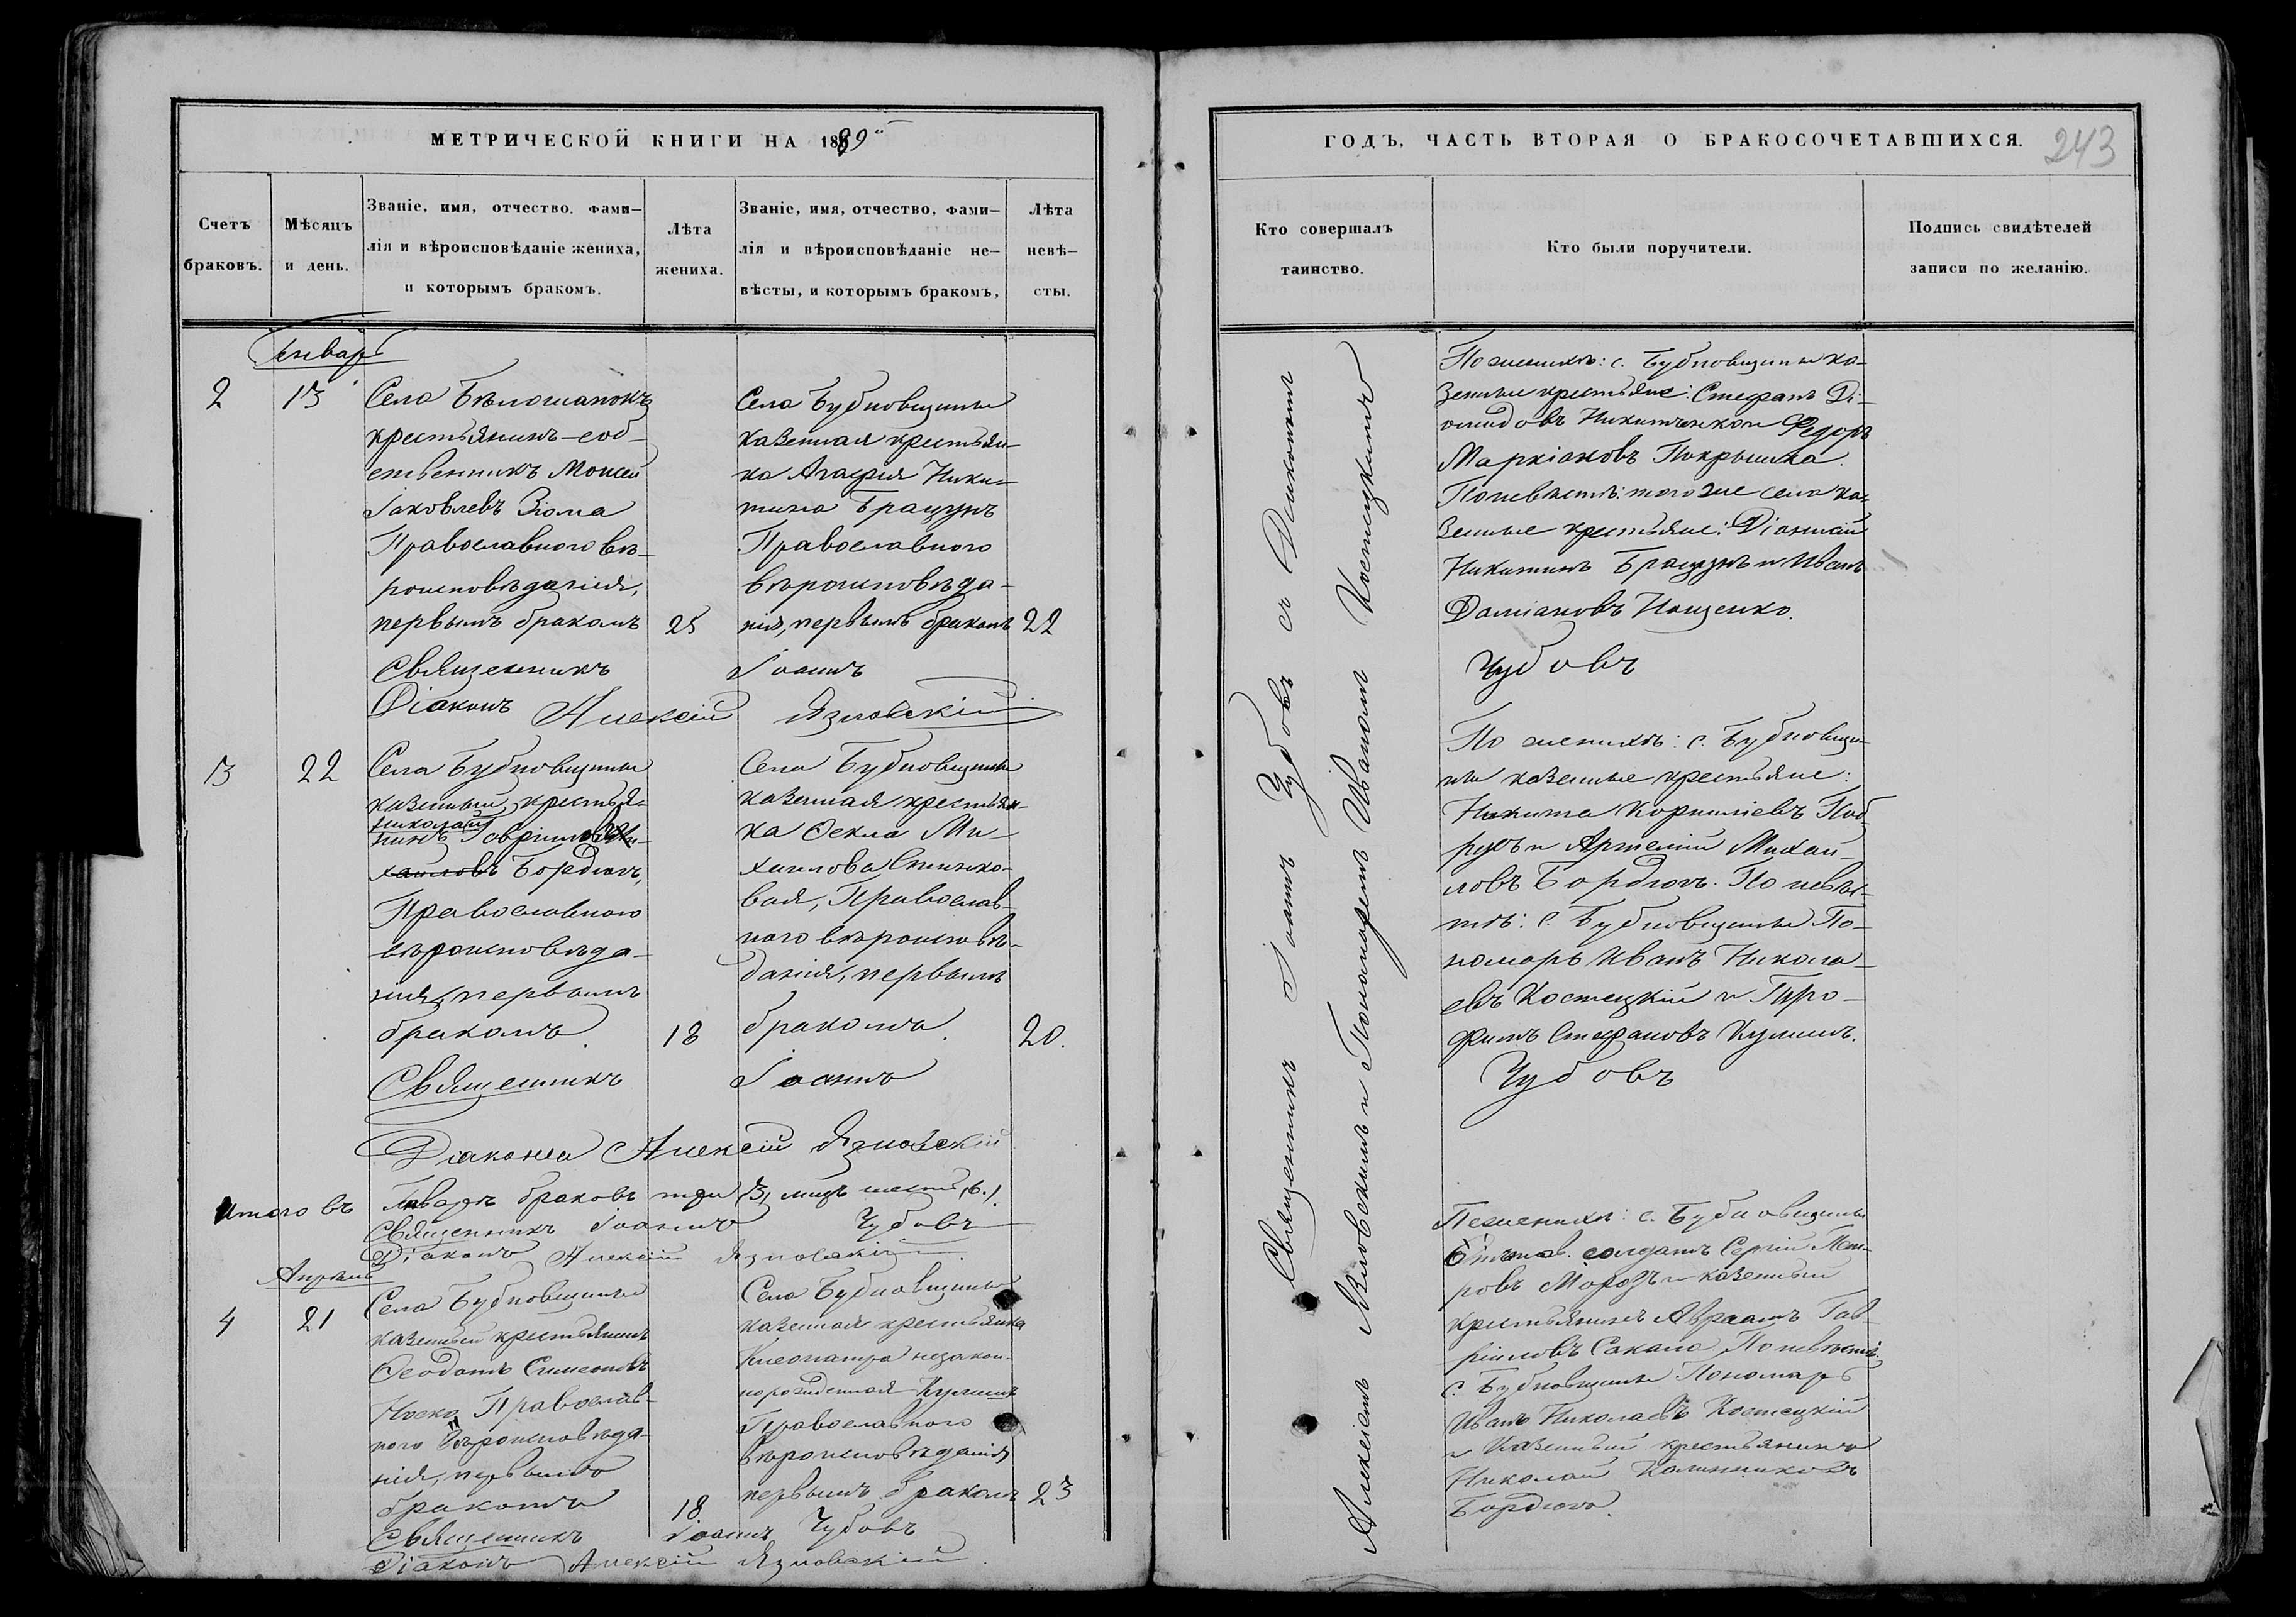 МЕТРИЧЕСКОЙ КНИГИ НА 1889
Счетъ браковъ.
Мѣсяцъ и день.
Званіе, имя, отчество. фами-
лія и вѣроисповѣданіе жениха,
и которымъ бракомъ.
Лѣта жениха.
Званіе, имя, отчество, фами-
лія и вѣроисповѣданіе не-
вѣсты, и которымъ бракомъ,
Лѣта невѣ-
сты.
Январь
2
13
Села Бѣлошапокъ
крестьянинъ-соб-
ственникъ Моисей
Іаковлевъ Зіома
Православного вѣ-
роисповѣданія,
первымъ бракомъ
25
Села Бубновщины
казенная крестьян-
ка Агафія Ники-
тина Брацунъ
Православного
вѣроисповѣда-
нія, первымъ бракомъ
22
Священникъ Іоаннъ
Діаконъ Алексій Язловскій
3
22
Села Бубновщины
казенный крестья-
Николай
нинъ Гавріиловъ Ми-
хаиловъ Бордюгъ,
Православного
вѣроисповѣда-
нія, первымъ
бракомъ.
18
Села Бубновщины
казенная крестьян-
ка Ѳекла Ми-
хаилова
вая, Православ-
ного вѣроисповѣ-
данія, первымъ
бракомъ.
20.
Священникъ Іоаннъ
Діаконъ Алексій Язловскій
Итого въ Январѣ браковъ три (3) лицъ шесть (6.).
Священникъ Іоаннъ Чубовъ
Діаконъ Алексій Язловскій
Апрѣль
4
21
Села Бубновщины
казенный крестьянинъ
Ѳеодотъ Симеоновъ
Носко, Православ-
ного вѣроисповѣда-
нія, первымъ
бракомъ
18
Села Бубновщины
казенная крестьянка
Клеопатра незакон-
норожденная Кулишъ
Православного
вѣроисповѣданія
первымъ бракомъ
23
Священникъ Іоаннъ Чубовъ
Діаконъ Алексій Язловскій.
ГОДЪ, ЧАСТЬ ВТОРАЯ О БРАКОСОЧЕТАВШИХСЯ.
243
Кто совершалъ
таинство.
Кто были поручители.
Подпись свидѣтелей
записи по желанію.
Священникъ Іоаннъ Чубовъ съ Діакономъ
Алексіемъ Язловскимъ и Пономаремъ Иваномъ Костецкимъ
По женихѣ: с. Бубновщины ка-
зенные крестьяне: Стефанъ Ді-
омидовъ Никитченко и Федоръ
Маркіановъ Покрышка.
По невѣстѣ: того же села ка-
зенные крестьяне: Діонисій
Никитинъ Брацунъ и Иванъ
Даміановъ Ищенко.
Чубовъ
По женихѣ: с. Бубновщи-
ны казенные крестьяне:
Никита Корниліевъ
и Артемій Михаи-
ловъ Бордюгъ. По невѣс-
тѣ: с. Бубновщины По-
номарь Иванъ Никола-
евъ Костецкій и Тро-
фимъ Стефановъ Кулишъ.
Чубовъ
По женихѣ: с. Бубновщины
солдатъ Сергій Пет-
ровъ Морозъ и казенный
крестьянинъ Авраамъ Гав-
ріиловъ Сакала. По невѣстѣ:
с. Бубновщины Пономарь
Иванъ Николаевъ Костецкій
и казенный крестьянинъ
Николай Калинниковъ
Бордюгъ.